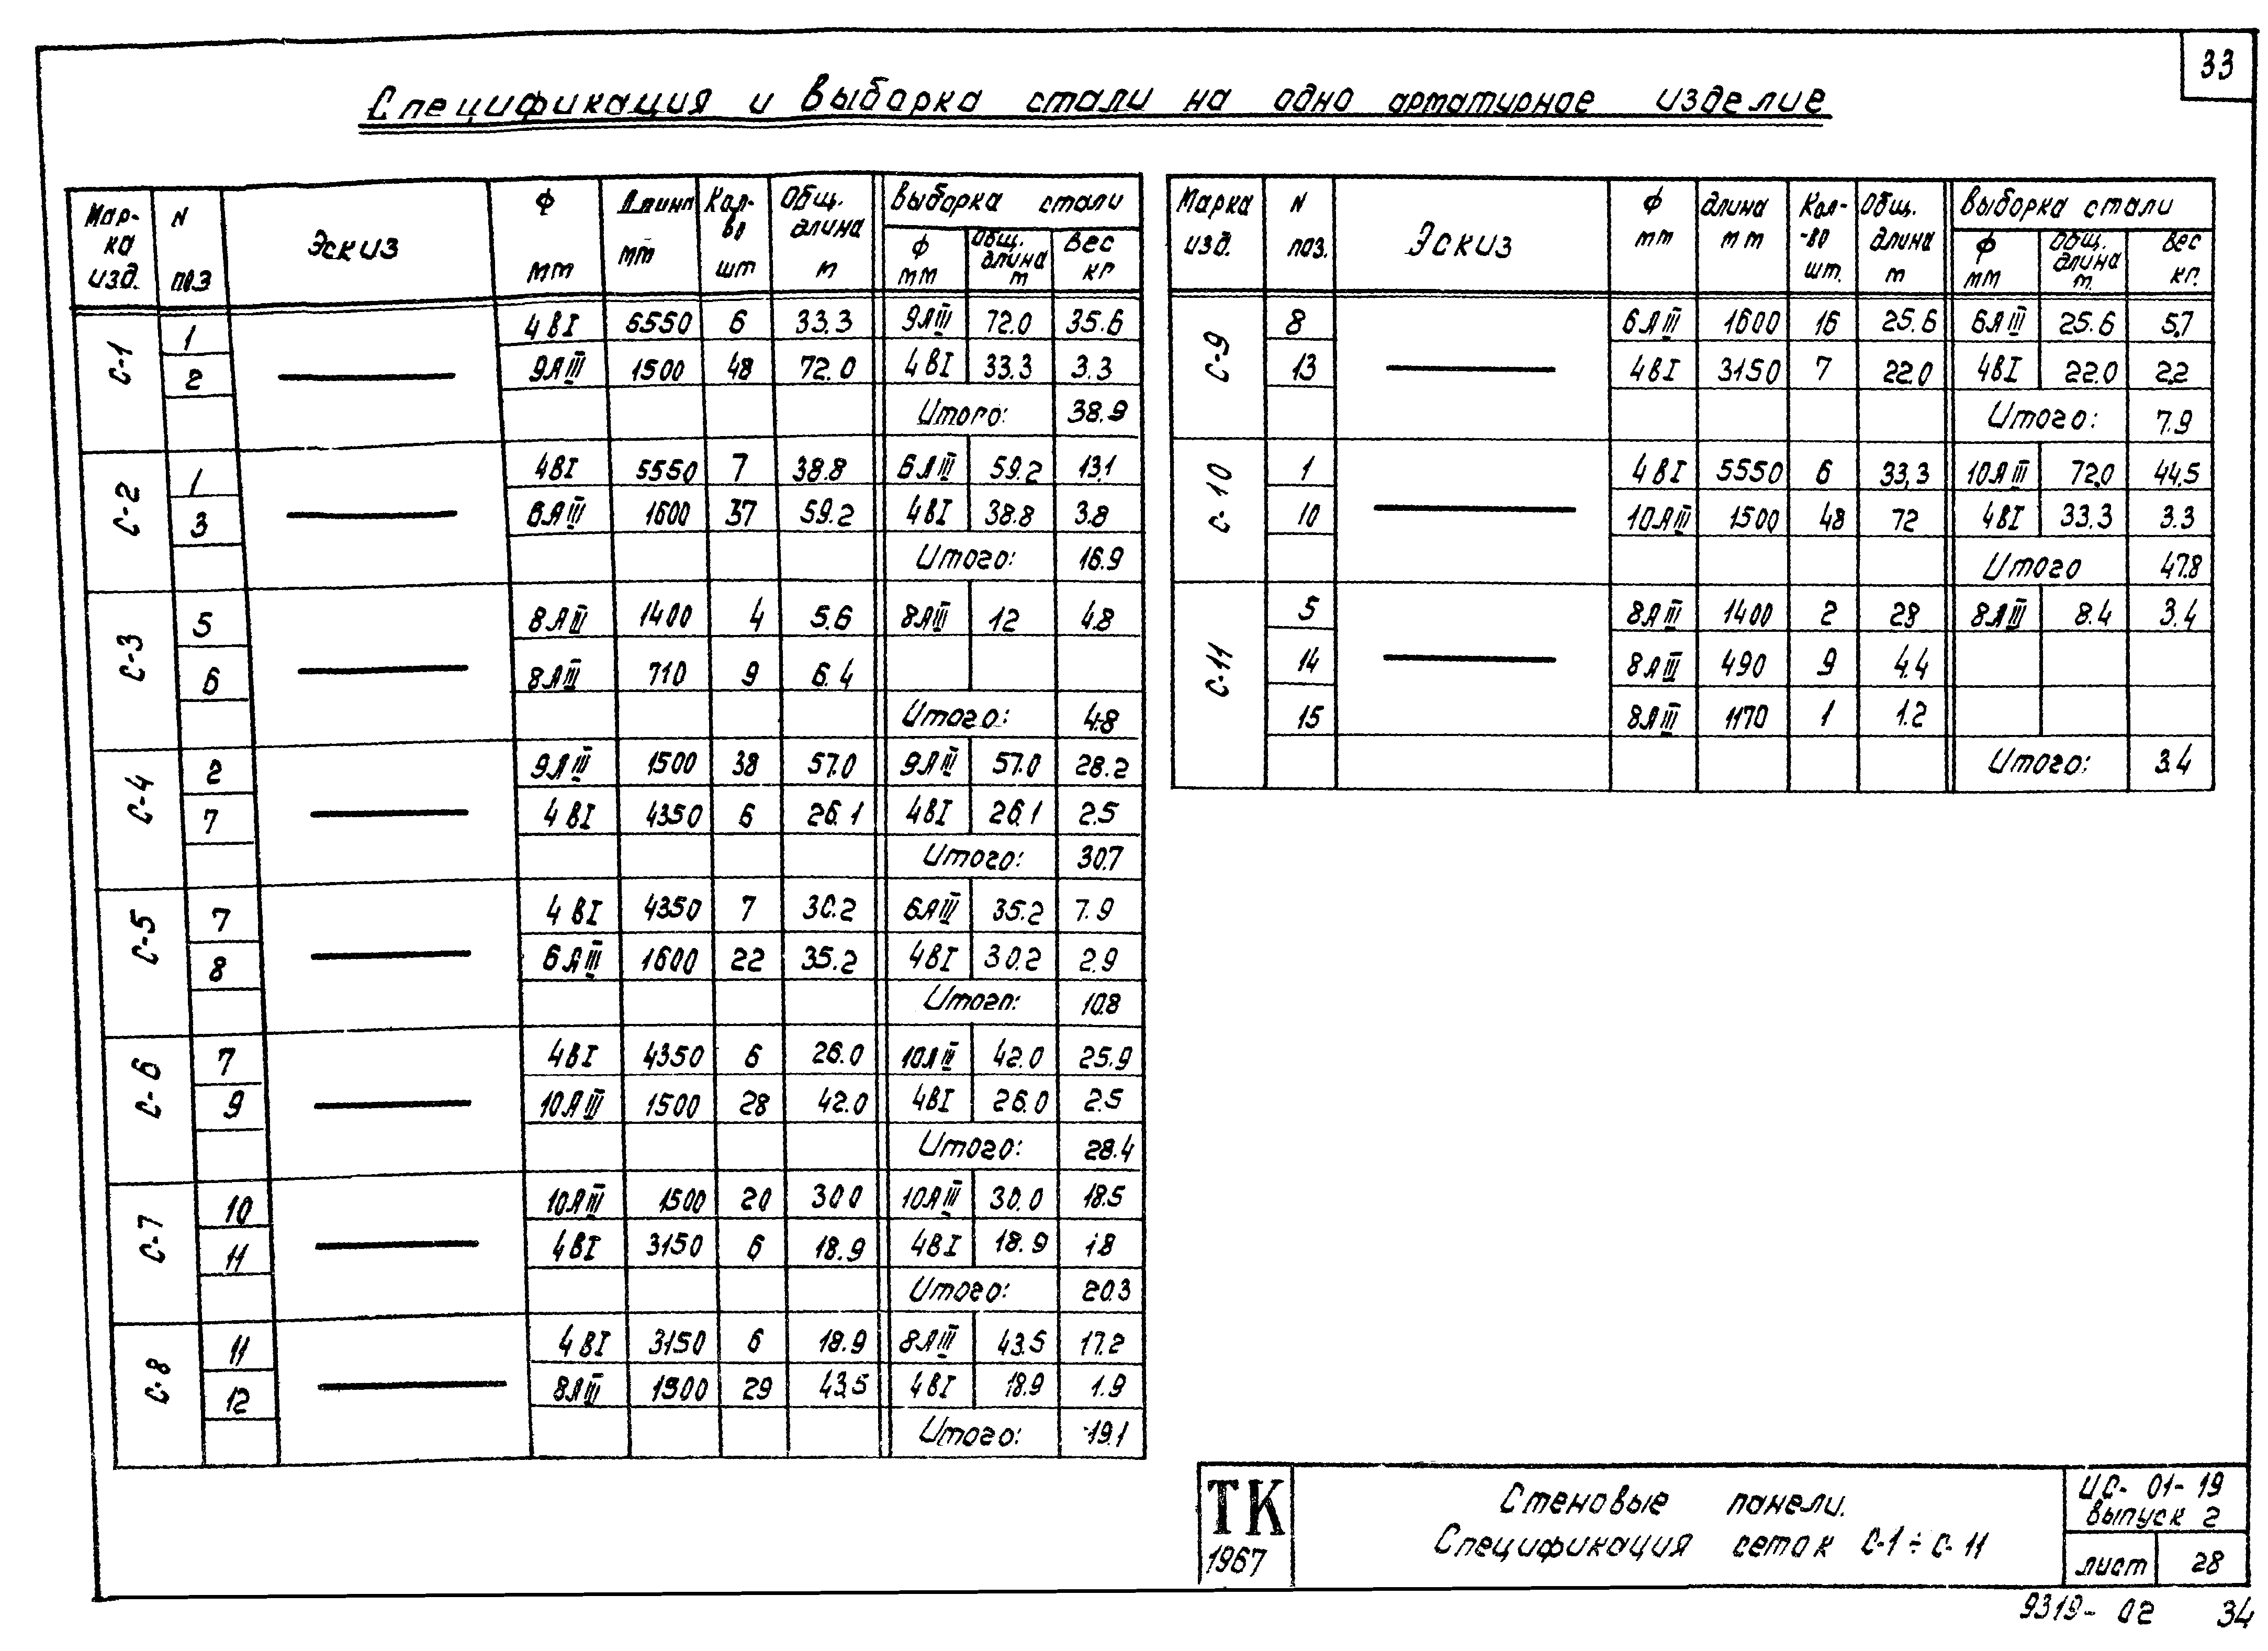 33
Спецификация и выборка стали на одно арматурное изделие
Мар-ка изд. N поз Эскиз Ф мм Длина мм Кол-во шт Общ. длина м Выборка стали
Ф мм Общ. длина м Вес кг
С-1
1 4ВI 5550 6 33.3 9АIII 72.0 35.6
2 9АIII 1500 48 72.0 4ВI 33.3 3.3
Итого: 38.9
С-2
1 4ВI 5550 7 38.8 6АIII 59.2 13.1
3 6АIII 1600 37 59.2 4ВI 38.8 3.8
Итого: 16.9
С-3
5 8АIII 1400 4 5.6 8АIII 12 4.8
6 8АIII 710 9 6.4
Итого: 4.8
С-4
2 9АIII 1500 38 57.0 9АIII 57.0 28.2
7 4ВI 4350 6 26.1 4ВI 26.1 2.5
Итого: 30.7
С-5
7 4ВI 4350 7 30.2 6АIII 35.2 7.9
8 6АIII 1600 22 35.2 4ВI 30.2 2.9
Итого: 10.8
С-6
7 4ВI 4350 6 26.0 10АIII 42.0 25.9
9 10АIII 1500 28 42.0 4ВI 26.0 2.5
Итого: 28.4
С-7
10 10АIII 1500 20 30.0 10АIII 30.0 18.5
11 4ВI 3150 6 18.9 4ВI 18.9 1.8
Итого: 20.3
С-8
11 4ВI 3150 6 18.9 8АIII 43.5 17.2
12 8АIII 1500 29 43.5 4ВI 18.9 1.9
Итого: 19.1
Марка изд. N поз. Эскиз Ф мм Длина мм Кол-во шт. Общ. длина м Выборка стали
Ф мм Общ. длина м. Вес кг.
С-9
8 6АIII 1600 16 25.6 6АIII 25.6 5.7
13 4ВI 3150 7 22.0 4ВI 22.0 2.2
Итого: 7.9
С-10
1 4ВI 5550 6 33,3 10АIII 72.0 44.5
10 10АIII 1500 48 72 4ВI 33.3 3.3
Итого 47.8
С-11
5 8АIII 1400 2 28 8АIII 8.4 3.4
14 8АIII 490 9 4.4
15 8АIII 1170 1 1.2
Итого: 3.4
ТК
1967
Стеновые панели.
Спецификация сеток С-1÷С-11
ИС-01-19
Выпуск 2
лист 28
9319-02 34